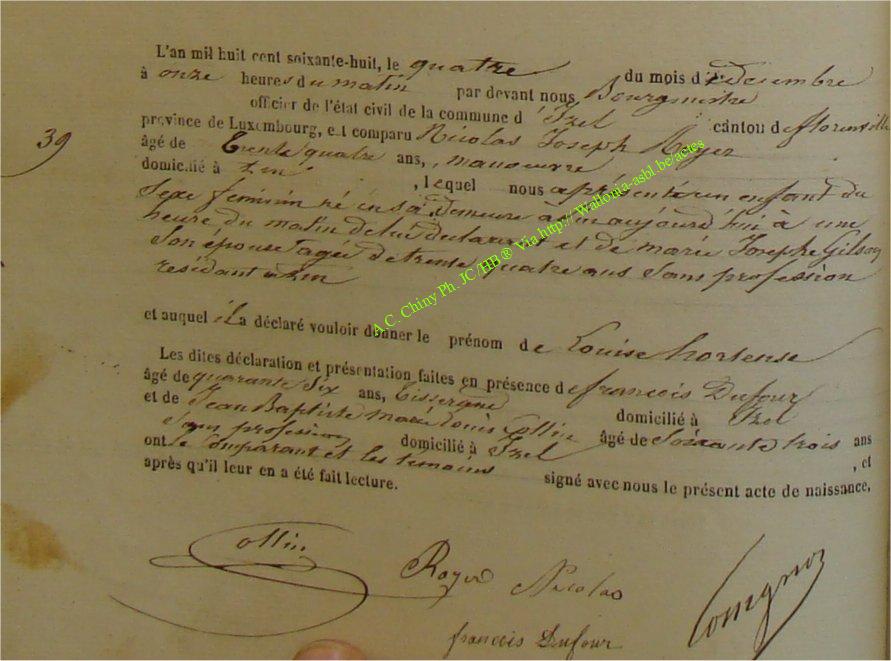 L'an mil huit cent soixante-huit, le quatre du mois de Decembre
à onze heures du matin par devant nous Bourgmestre
officier de l'état civil de la commune d' Izel canton de florenville
39
province de Luxembourg, est comparu Nicolas Joseph Royer
âgé de trente quatre ans, manoeuvre
domicilié à , lequel nous a présenté un enfant du
Sexe feminin né en sa demeure aujourd'hui à une
heure du matin de lui declarant et de marie Josephe Gilson
Son épouse agée de trente quatre ans Sans profession
residant
et auquel il a déclaré vouloir donner le prénom de Louise hortense
Les dites déclaration et présentation faites en présence de françois Dufour
âgé de quarante Six ans, domicilié à Izel
et de Jean Baptiste marie Louis Collin âgé de Soixante trois ans
Sans profession domicilié à Izel , et
ont le comparant et les temoins signé avec nous le présent acte de naissance,
après qu'il leur en a été fait lecture.
Collin
Royer Nicolas
françois Dufour
A.C. Chiny Ph. JC/HB ® Via http://Wallonia-asbl.be/actes